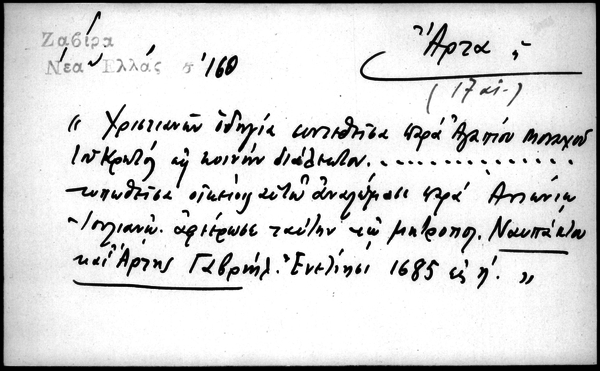 Ζαβίρα
Νέα Ἑλλάς σ. 160
Ἄρτα
(17 αἰ.)
« Χριστιανῶν ὁδηγία συντεθεῖσα παρά Ἀγαπίου Μοναχοῦ
τοῦ Κρητός εἰς κοινήν διάλεκτον. . . . . . . . . . . . . . .
τυπωθεῖσα οἰκείοις αὐτοῦ ἀναλώμασι παρά Ἀντωνίου
Ἰουλιανῶ. ἀφιέρωσε ταύτην τῷ μητροπολ. Ναυπάκτου
καί Ἄρτης Γαβριήλ. Ἐνετίησι 1685 εἰς η΄. »